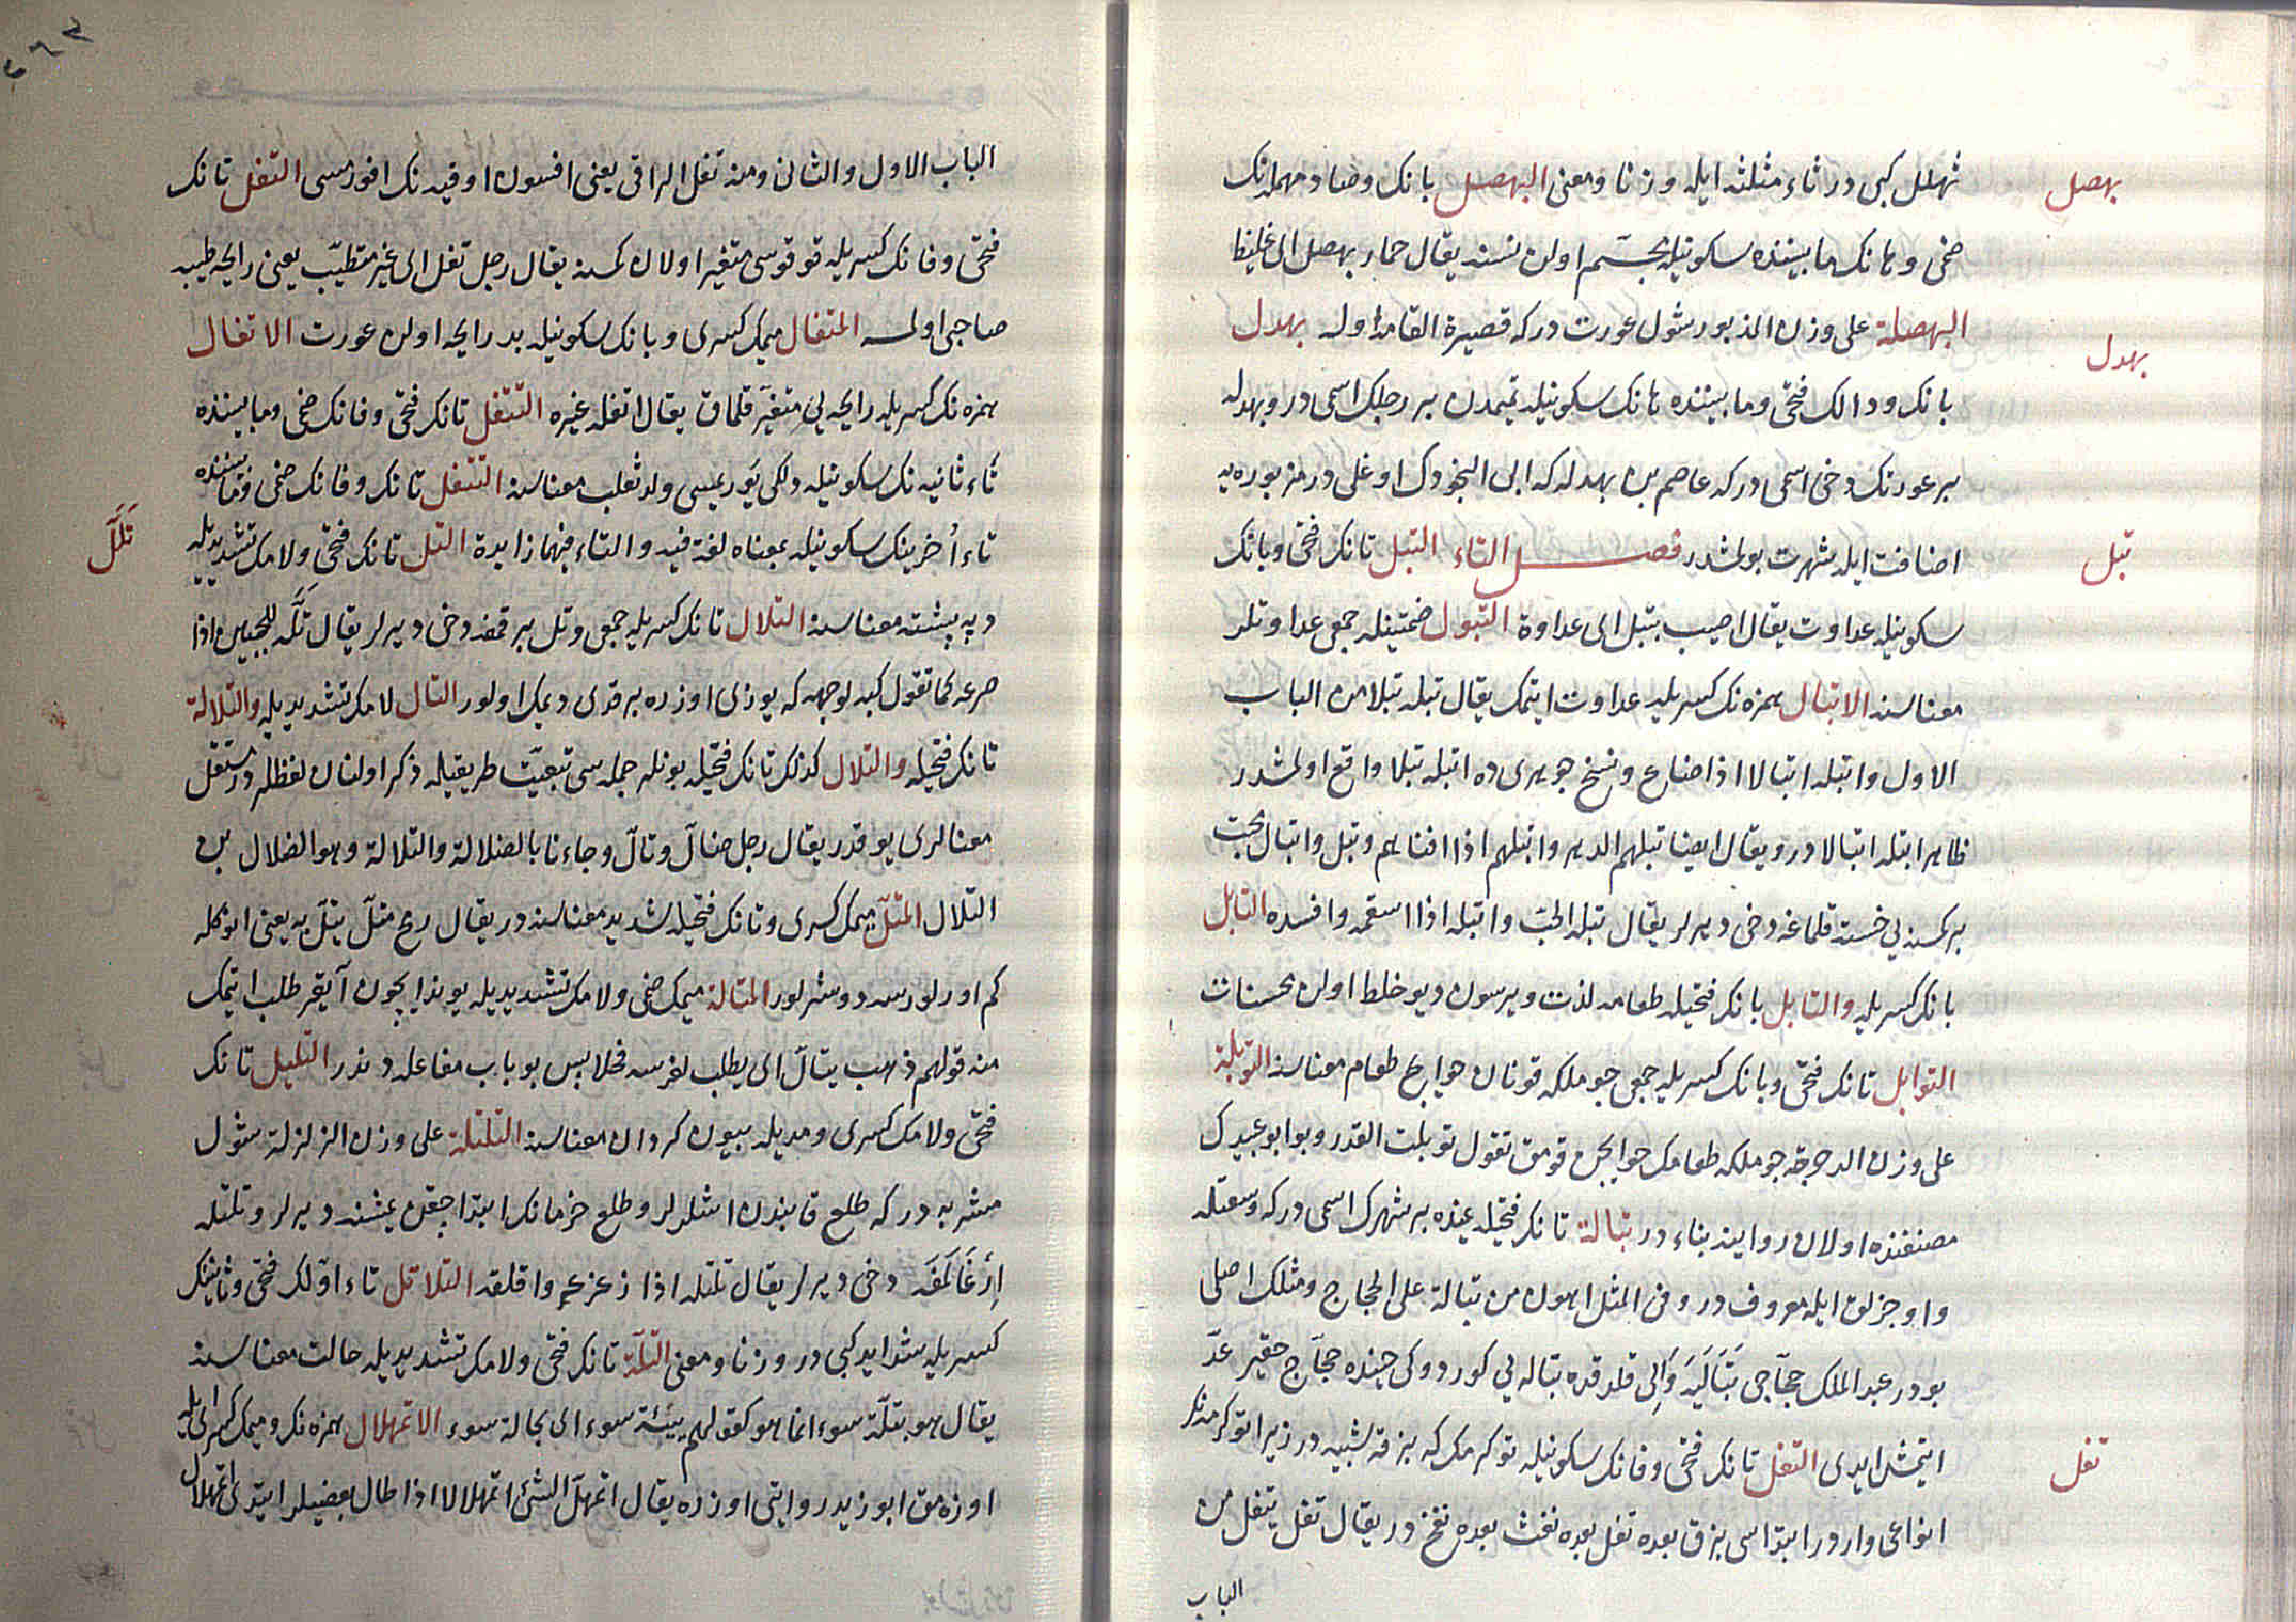 بهصل
ثهلل كبى در ثاء مثلثه ايله وزنا ومعنى البهصل بانك وضاد مهملهنك
ضمى وهانك مابيننده سكونيله مجسّم اولن نسنه يقال حمار بهصل اى غليظ
البهصلة على وزن المذبور شول عورت دركه قصيرة القامة اوله بهدل
بهدل
بانك ودالك فتحى ومابيننده هانك سكونيله تميمدن بر رجلك اسمى در وبهدله
بر عورتك دخى اسمى دركه عاصم بن بهدله كه ابى النجودك اوغلى در مزبوره يه
تبل
اضافت ايله شهرت بولمشدر فصل التاء التبل تانك فتحى وبانك
سكونيله عداوت يقال اصيب بتبل اى عداوة التبول ضمتينله جمعى عداوتلر
معناسنه الاتبال همزه نك كسريله عداوت ايتمك يقال تبله تبلا من الباب
الاول واتبله اتبالا اذا ضارع ونسخ جوهرى ده اتبله تبلا واقع اولمشدر
ظاهر اتبله اتبالا در ويقال ايضا تبلهم الدهر واتبلهم اذا افناهم وتبل واتبال محبت
بر كمسنه يى خسته قلماغه دخى ديرلر يقال تبله الحبّ واتبله اذا اسقمه وافسده التابل
بانك كسريله والتابل بانك فتحيله طعامه لذت ويرسون ديو خلط اولن محسنات
التوابل تانك فتحى وبانك كسريله جمعى جوملكه قونان حوايج طعام معناسنه التوبلة
على وزن الدحرجة جوملكه طعامك حوايجن قومق تقول توبلت القدر وبو ابو عبيدك
مصنفنده اولان روايته بناء در تبالة تانك فتحيله يمنده بر شهرك اسمى دركه وسعتله
واوجزلق ايله معروف در وفى المثل اهون من تبالة على الحجاج ومثلك اصلى
بودر عبد الملك حجّاجى تَبَالَيَه وَالِى قلدقده تباله يى كوردوكى حينده حجّاج حقير عدّ
تفل
ايتمش ايدى التفل تانك فتحى وفانك سكونيله توكرمك كه بزقه شبيه در زيرا توكرمكك
انواعى واردر ابتداسى بزق بعده تفل بعده نفث بعده نفخ در يقال تفل يتفل من
الباب
الباب الاول والثانى ومنه تفل الراقى يعنى افسون اوقيدنك افورمسى التفل تانك
فتحى وفانك كسريله قوقوسى متغير اولان كمسنه يقال رجل تفل اى غير متطيّب يعنى رايحه طيبه
صاحبى اولمه المتفال ميمك كسرى وبانك سكونيله بد رايحه اولن عورت الاتفال
همزه نك كسريله رايحه يى متغيّر قلماق يقال اتفله غيره التتفل تانك فتحى وفانك ضمى ومابيننده
تاء ثانيه نك سكونيله دلكى يوريسى ولد ثعلب معناسنه التتفل تانك وفانك ضمى ومابيننده
تَلَلَ
تاء اُخرينك سكونيله بمعناه لغة فيه والتاء فيهما زايدة التل تانك فتحى ولامك تشديديله
دپه پشته معناسنه التلال تانك كسريله جمعى وتل بر قمغه دخى ديرلر يقال تَلَّه للجبين اذا
صرعه كما تقول كبه لوجهه كه يوزى اوزره برقدى ديمك اولور التال لامك تشديديله والتلالة
تانك فتحيله والتلال كذلك تانك فتحيله بونلر جمله سى تبعيّت طريقيله ذكر اولنان لفظلر در مستقل
معنالرى يوقدر يقال رجل ضالّ وتالّ وجاءنا بالضلالة والتلالة وهو الضلال بن
التلال المتلّ ميمك كسرى وتانك فتحيله شديد معناسنه در يقال رمح متلّ يتلّ به يعنى انوكله
كم اورلورسه دوشرلور المتالة ميمك ضمى ولامك تشديديله يوندا يچون آيغر طلب ايتمك
منه قولهم ذهب يتالّ اى يطلب لفرسه فحلا پس بو باب مفاعله دندر التليل تانك
فتحى ولامك كسرى ومديله بيون كردان معناسنه التلتلة على وزن الزلزلة شول
مشربه دركه طلع قابندن اشلرلر وطلع خرمانك ابتدا چقن يمشنه ديرلر وتلتله
اِرْغَالَمَغَه دخى ديرلر يقال تلتله اذا زعزعه واقلقه التلاتل تاء اوّلك فتحى وثانينك
كسريله شدايد كبى در وزنا ومعنى التلّة تانك فتحى ولامك تشديديله حالت معناسنه
يقال هو بتلّة سوء انما هو كقولهم ببيئة سوء اى بحالة سوء الاتمهلال همزه نك وميمك كسرلرى ايله
اوزه مق ابو زيد روايتى اوزره يقال اتمهلّ الشئ اتمهلالا اذا طال بعضيلر ايتدى اتمهلال